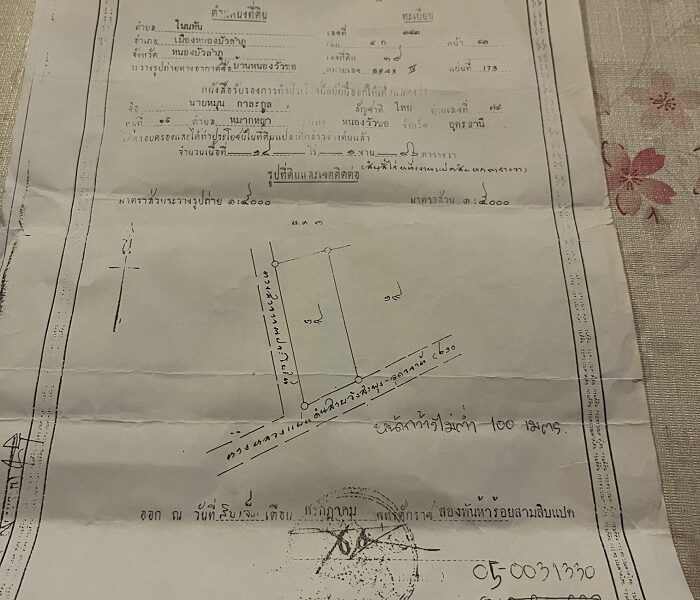 ตำแหน่งที่ดิน ทะเบียน
ตำบล โนนทัน เลขที่ ๓๔๓
อำเภอ เมืองหนองบัวลำภู เล่ม ๔ ก หน้า ๔๓
จังหวัด หนองบัวลำภู เลขที่ดิน
ระวางรูปถ่ายทางอากาศชื่อ บ้านหนองวัวซอ หมายเลข 5543 IV แผ่นที่ 173
หนังสือรับรองการทำประโยชน์
ชื่อ นายหมุน กาละกูล สัญชาติ ไทย บ้านเลขที่ ๗๙
หมู่ที่ ตำบล หมากหญ้า อำเภอ หนองวัวซอ จังหวัด อุดรธานี
ได้ครอบครองและได้ทำประโยชน์ในที่ดินแปลง
จำนวนเนื้อที่ ๑๔ ไร่ ๑ งาน ๘๖ ตารางวา
(สิบสี่ไร่ หนึ่งงาน แปดสิบหกตารางวา)
รูปที่ดินและเขตติดต่อ
มาตราส่วนระวางรูปถ่าย ๑:๕๐๐๐ มาตราส่วน ๑:๕๐๐๐
น.ส. ๓
ทางสาธารณประโยชน์
ทางหลวงแผ่นดินสายวังสะพุง-อุดรธานี
หน้ากว้างไม่ต่ำ 100 เมตร.
ออก ณ วันที่ สิบเจ็ด เดือน กรกฎาคม พุทธศักราช สองพันห้าร้อยสามสิบแปด
05-0031330